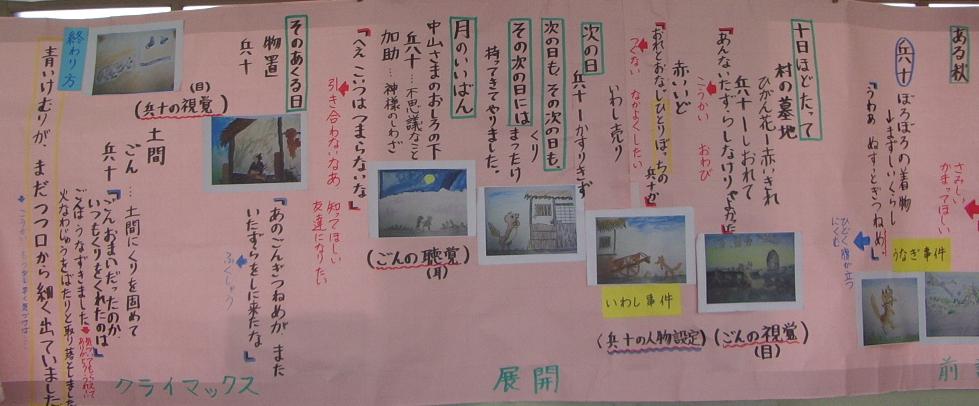 ある秋
さみしい
かまってほしい
兵十
ぼろぼろの着物
↓まずしいくらし
「うわあ ぬすっとぎつねめ。」
ひどく腹が立つ
にくむ
うなぎ事件
前
十日ほどたって
村の墓地
ひがん花ー赤いきれ
兵十ーしおれて
「あんないたずらしなけりゃよかった
こうかい おわび
赤いいど
「おれとおなじひとりぼっちの兵十か」
つぐない なかよくしたい
次の日
兵十ーかすりきず
いわし売り
いわし事件
(兵十の人物設定)
(ごんの視覚)
(目)
次の日も、その次の日も、
その次の日には くり
持ってきてやりました。
まったり
月のいいばん
中山さまのおしろの下
兵十…不思議なこと
加助…神様のしわざ
(ごんの聴覚)
(耳)
「へえ こいつはつまらないな」
引き合わないなあ
知ってほしい
友達になりたい
展開
そのあくる日
物置
兵十
「あのごんぎつねめが また
いたずらをしに来たな」
ふくしゅう
(目)
(兵十の視覚)
土間
ごん…土間にくりを固めて
兵十「ごんおまいだったのか、
いつもくりをくれたのは」
ごんは うなずきました
火なわじゅうをばたりと取り落としました
クライマックス
終わり方
青いけむりが、まだつつ口から細く出ていました